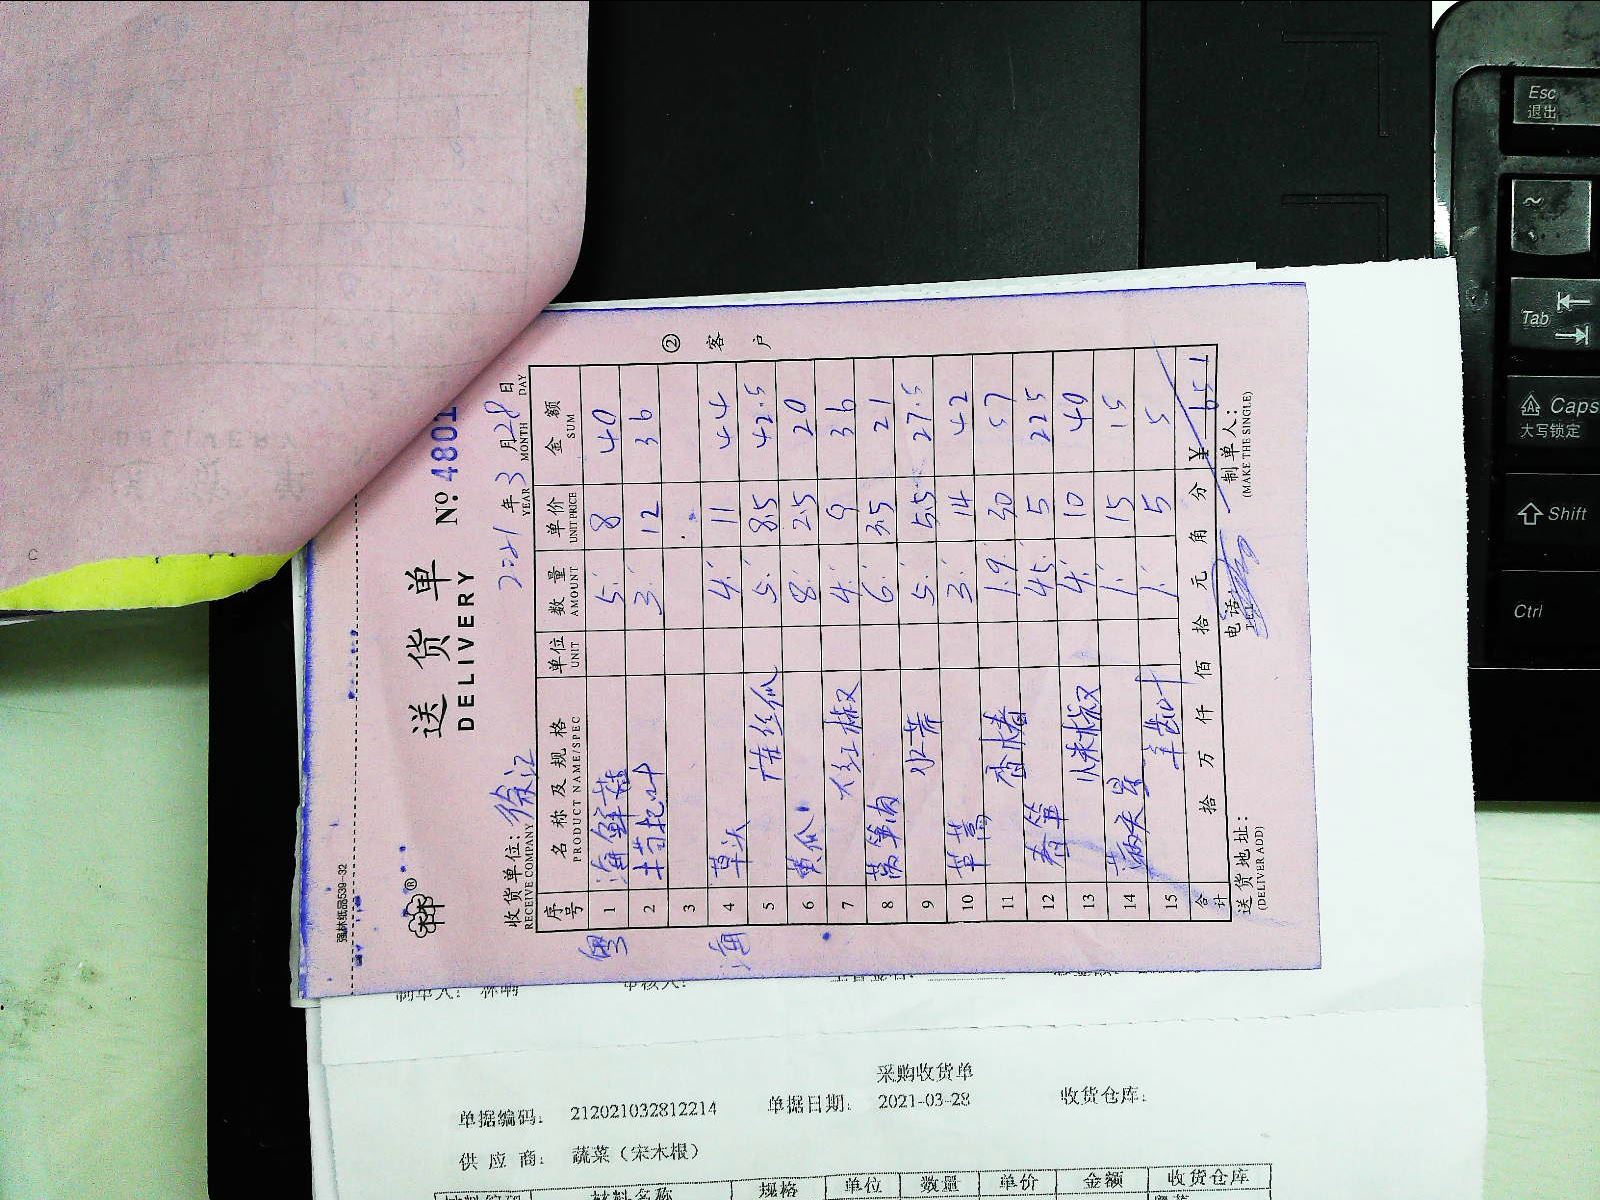 强林纸品539-32
送货单
DELIVERY
№ 4801
② 客户
收货单位: 徐汇
RECEIVE COMPANY
2021年3月28日
YEAR MONTH DAY
序号 名称及规格 单位 数量 单价 金额
PRODUCT NAME/SPEC UNIT AMOUNT UNIT PRICE SUM
粤 1 海鲜菇 5 8 40
2 枸杞叶 3 12 36
3
海 4 草头 4 11 44
5 丝瓜 5 8.5 42.5
6 黄瓜 8 2.5 20
7 大红椒 4 9 36
8 莴笋肉 6 3.5 21
9 水芹 5 5.5 27.5
10 草蒿 3 14 42
11 香椿 1.9 30 57
12 春笋 4.5 5 22.5
13 4 10 40
14 1 15 15
15 1 5 5
合计 拾 万 仟 佰 拾 元 角 分 ¥ 651
送货地址: 电话: 制单人:
(DELIVER ADD) (MAKE THE SINGLE)
制单人:
采购收货单
单据编码: 212021032812214 单据日期: 2021-03-28 收货仓库:
供应商: 蔬菜(宋木根)
材料编码 材料名称 规格 单位 数量 单价 金额 收货仓库
Esc
退出
~
Tab
Caps
大写锁定
Shift
Ctrl